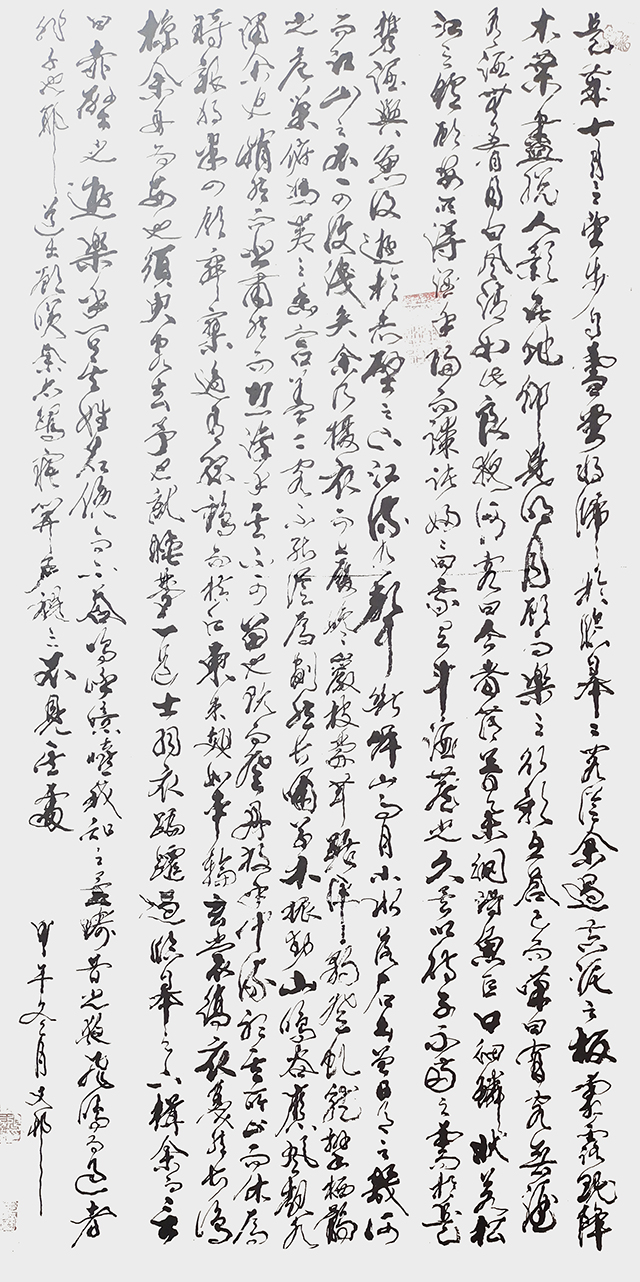 是歲十月之望步自雪堂將歸於臨皋二客從余過黃泥之坂霜露既降
木葉盡脫人影在地仰見明月顧而樂之行歌互答已而嘆曰有客無酒
有酒無肴月白風清如此良夜何客曰今者薄暮舉網得魚巨口細鱗狀若松
江之鱸顧安所得酒乎歸而謀諸婦婦曰我有斗酒藏之久矣以待子不時之需於是
攜酒與魚復遊於赤壁之下江流有聲斷岸山高月小水落石出曾日月之幾何
而江山之不可復識矣余乃攝衣而上履巉巖披蒙茸踞虎豹登虬龍攀棲鶻
之危巢俯馮夷之幽宮蓋二客不能從焉劃然長嘯草木振動山鳴谷應風起水
湧余亦悄然而悲肅然而恐凜乎其不可留也反而登舟放乎中流聽其所止而休焉
時夜將半四顧寂寥適有孤鶴橫江東來翅如車輪玄裳縞衣戛然長鳴
掠余舟而西也須臾客去予亦就睡夢一道士羽衣蹁躚過臨皋之下揖余而言
曰赤壁之遊樂乎問其姓名俛而不答嗚呼噫嘻我知之矣疇昔之夜飛鳴而過者
非子也耶道士顧笑余亦驚寤開戶視之不見其處
甲午冬月文邦